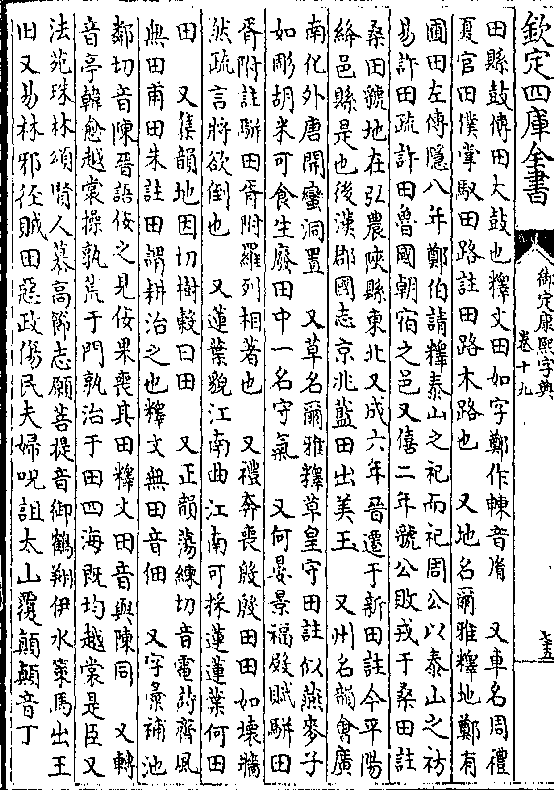 欽定四庫全書
御定康熙字典
卷十九
田縣鼓傳田大鼓也釋文田如字鄭作𣌾音胤　又車名周禮
夏官田僕掌馭田路註田路木路也　又地名爾雅釋地鄭有
圃田左傳隱八年鄭伯請釋泰山之祀而祀周公以泰山之祊
易許田疏許田魯國朝宿之邑又僖二年虢公敗戎于桑田註
桑田虢地在弘農陝縣東北又成六年晉遷于新田註今平陽
絳邑縣是也後漢郡國志京兆藍田出美玉　又州名韻會廣
南化外唐開蠻洞置　又草名爾雅釋草皇守田註似燕麥子
如彫胡米可食生廢田中一名守氣　又何晏景福殿賦駢田
胥附註駢田胥附羅列相著也　又禮奔喪殷殷田田如壞牆
然疏言將欲倒也　又蓮葉貌江南曲江南可採蓮蓮葉何田
田　又集韻地因切樹穀曰田　又正韻蕩練切音電詩齊風
無田甫田朱註田謂耕治之也釋文無田音佃　又字彙補池
鄰切音陳晉語佞之見佞果喪其田釋文田音與陳同　又轉
音亭韓愈越裳操孰荒于門孰治于田四海既均越裳是臣又
法苑珠林頌賢人慕高節志願菩提音御鶴翔伊水䇿馬出王
田又易林邪徑賊田惡政傷民夫婦呪詛太山覆顛顛音丁